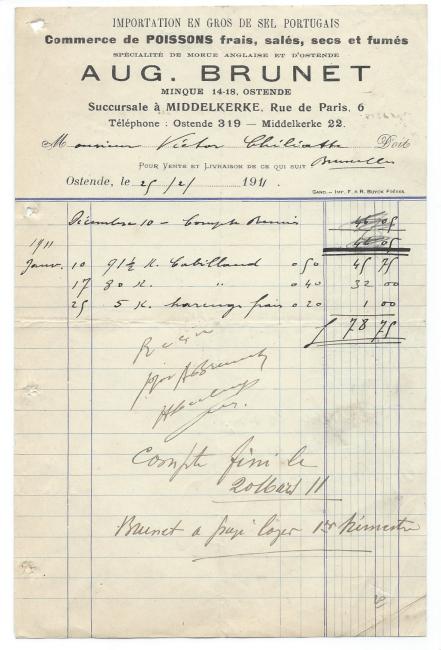 IMPORTATION EN GROS DE SEL PORTUGAIS
Commerce de POISSONS frais, salés, secs et fumés
SPÉCIALITÉ DE MORUE ANGLAISE ET D'OSTENDE
AUG. BRUNET
MINQUE 14-18, OSTENDE
Succursale à MIDDELKERKE, Rue de Paris, 6
Téléphone : Ostende 319 — Middelkerke 22.
Monsieur Victor Doit
POUR VENTE ET LIVRAISON DE CE QUI SUIT Bruxelles
Ostende, le 25/2/ 1911
GAND. — IMP. F. & R. BUYCK FRÈRES.
Décembre 10 — Compte Remis 05
1911 05
Janv. 10 91½ K. Cabillaud 0 50 45 75
17 80 K. " 0 40 32 00
25 5 K. harengs frais 0 20 1 00
f 78 75
Reçu
pour A Brunet
Compte fini le
20 Mars 11
Brunet a payé loyer 1er trimestre